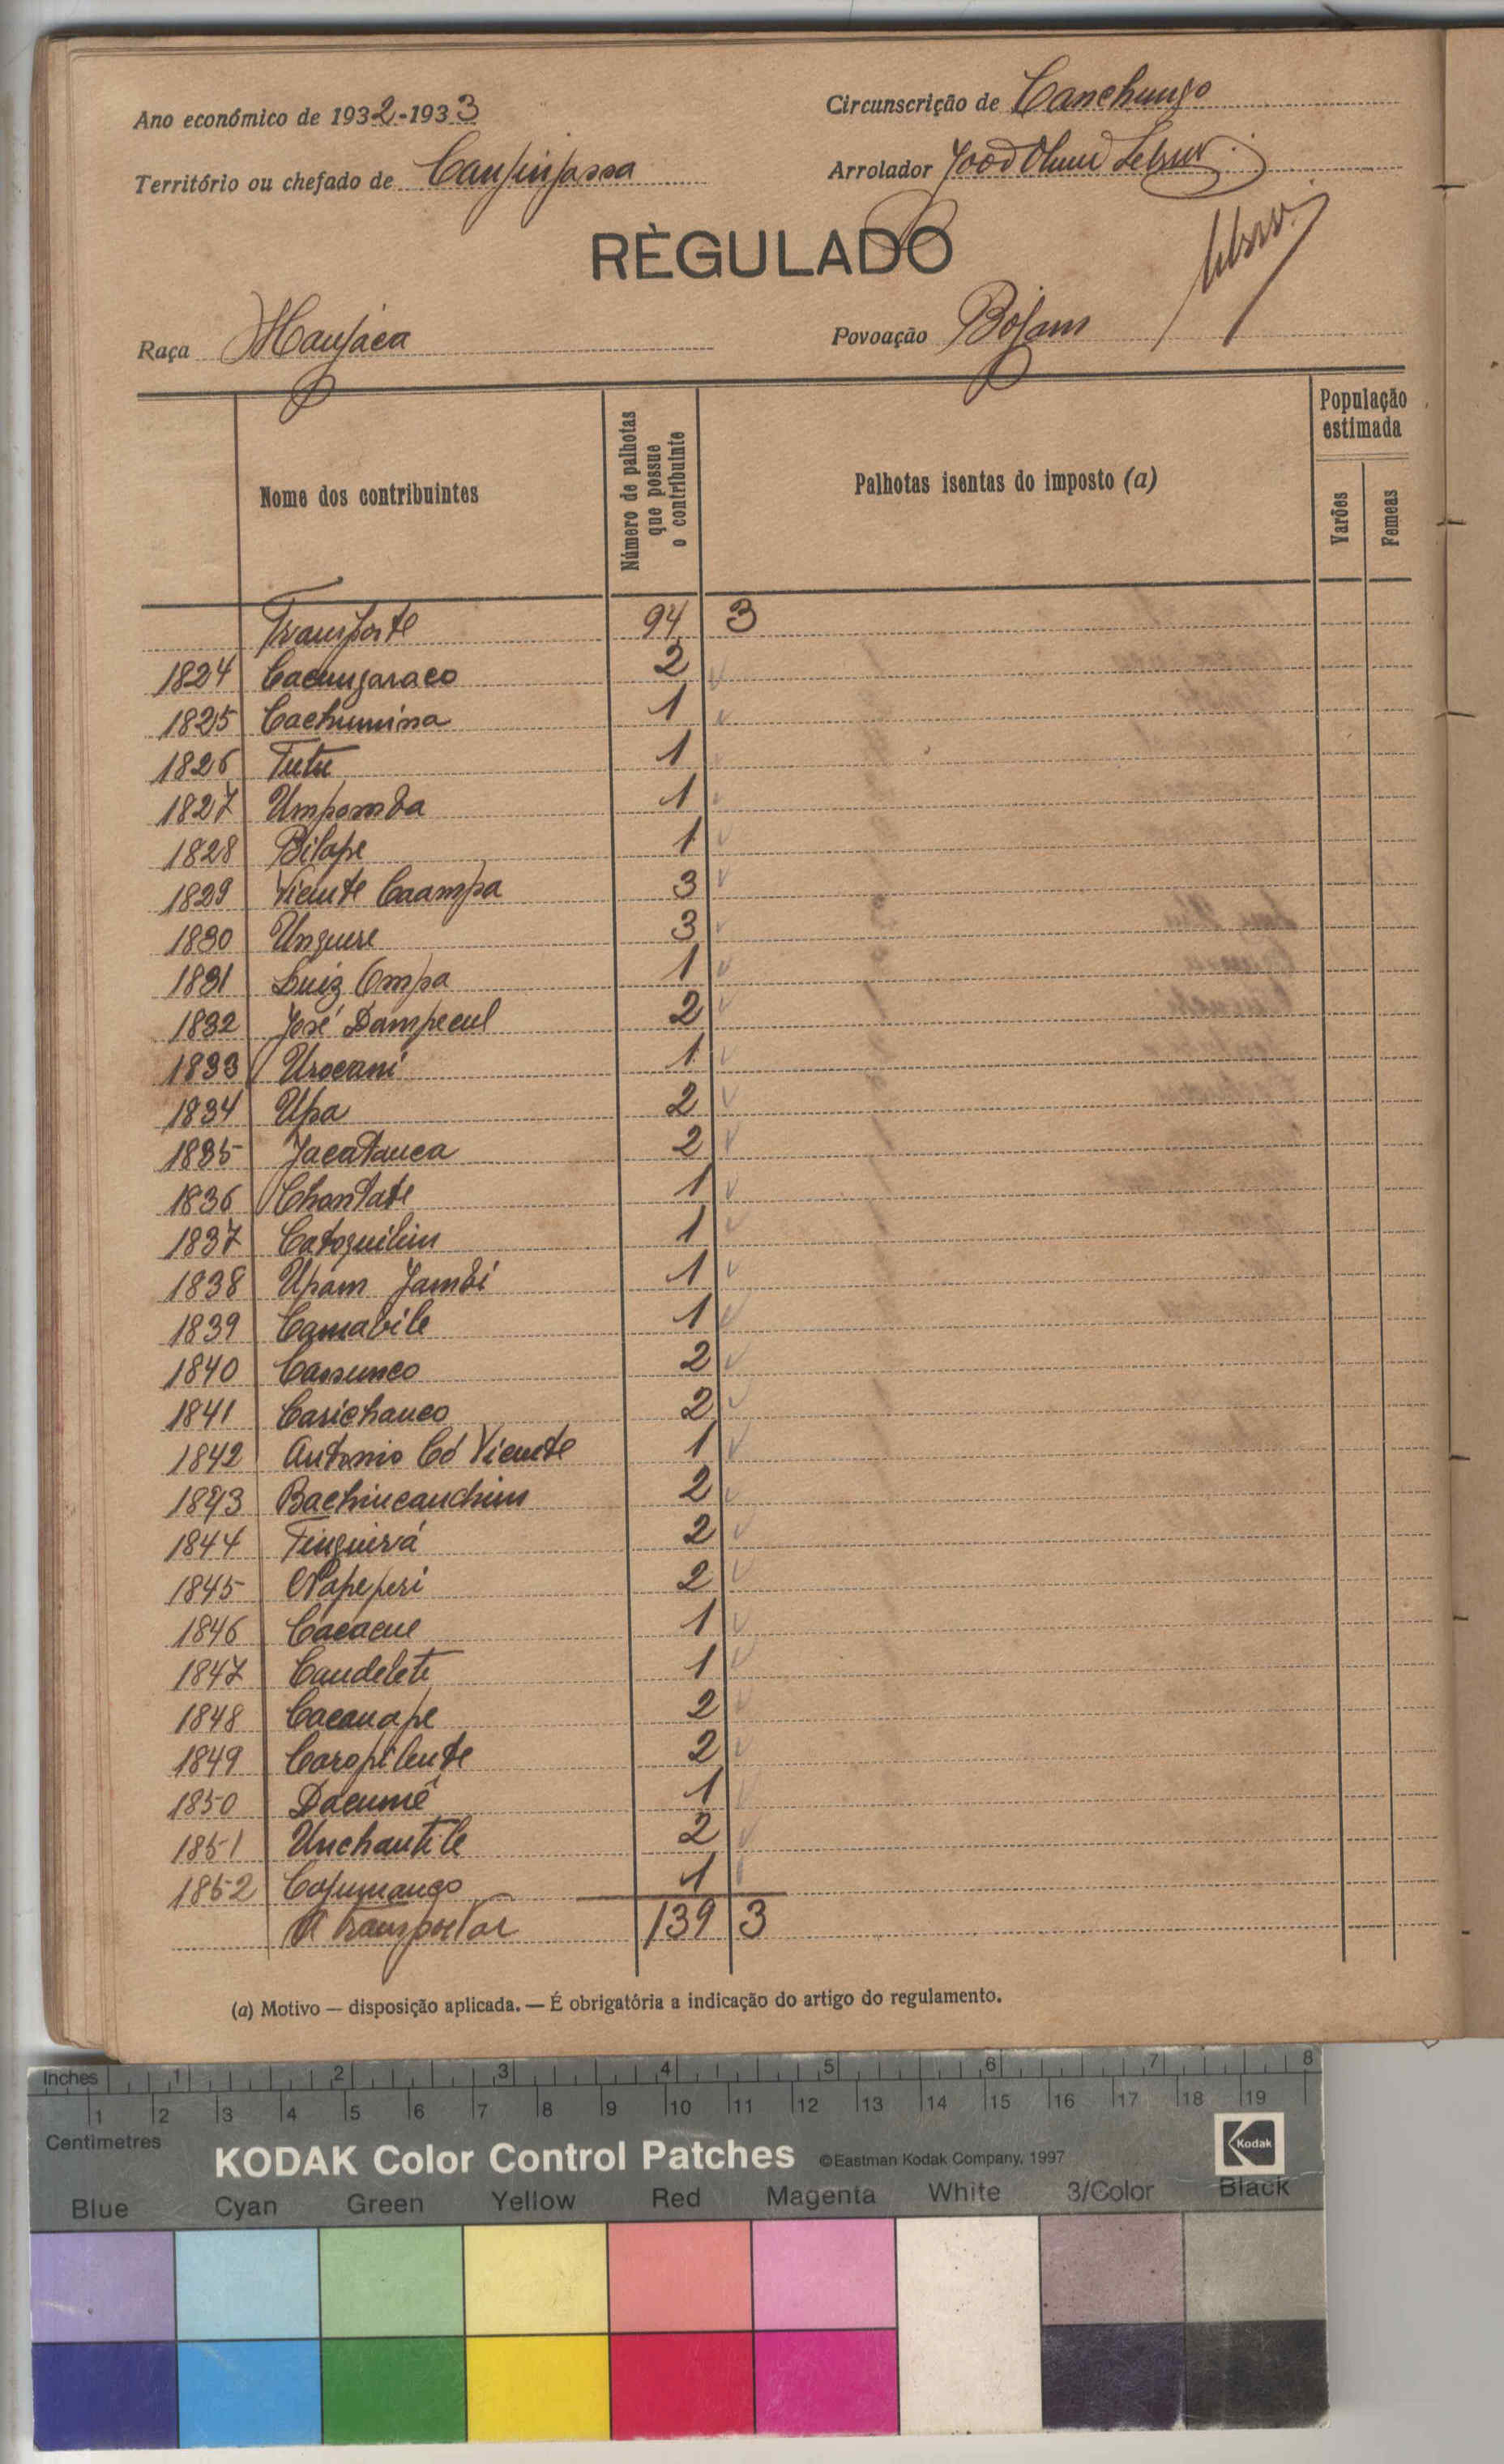 Ano económico de 1932-1933
Circunscrição de Canchungo
Território ou chefado de Canjinjassa
Arrolador João
RÈGULADO
Raça Manjaca
Povoação Bojam
Nome dos contribuintes
Número de palhotas que possue o contribuinte
Palhotas isentas do imposto (a)
População estimada
Varões
Femeas
Transporte 94 3
1824 Cacungaraco 2
1825 Cachumina 1
1826 Tutu 1
1827 Umpomba 1
1828 Bilape 1
1829 Vicente Caampa 3
1830 Unguere 3
1831 Luiz Ompa 1
1832 José Dampecul 2
1833 Urocani 1
1834 Upa 2
1835 Jacatanca 2
1836 Chantate 1
1837 Catoquilim 1
1838 Upam Jambi 1
1839 Camabile 1
1840 Cassunco 2
1841 Carichanco 2
1842 Antonio Có Vicente 1
1843 Bachincanchim 2
1844 Tinguirá 2
1845 Napeperi 2
1846 Cacacue 1
1847 Candelete 1
1848 Cacanape 2
1849 Caropilente 2
1850 Dacumê 1
1851 Unchantile 2
1852 Cajumango 1
A transportar 139 3
(a) Motivo — disposição aplicada. — É obrigatória a indicação do artigo do regulamento.
Inches 1 2 3 4 5 6 7 8
1 2 3 4 5 6 7 8 9 10 11 12 13 14 15 16 17 18 19
Centimetres
KODAK Color Control Patches ©Eastman Kodak Company, 1997 Kodak
Blue Cyan Green Yellow Red Magenta White 3/Color Black